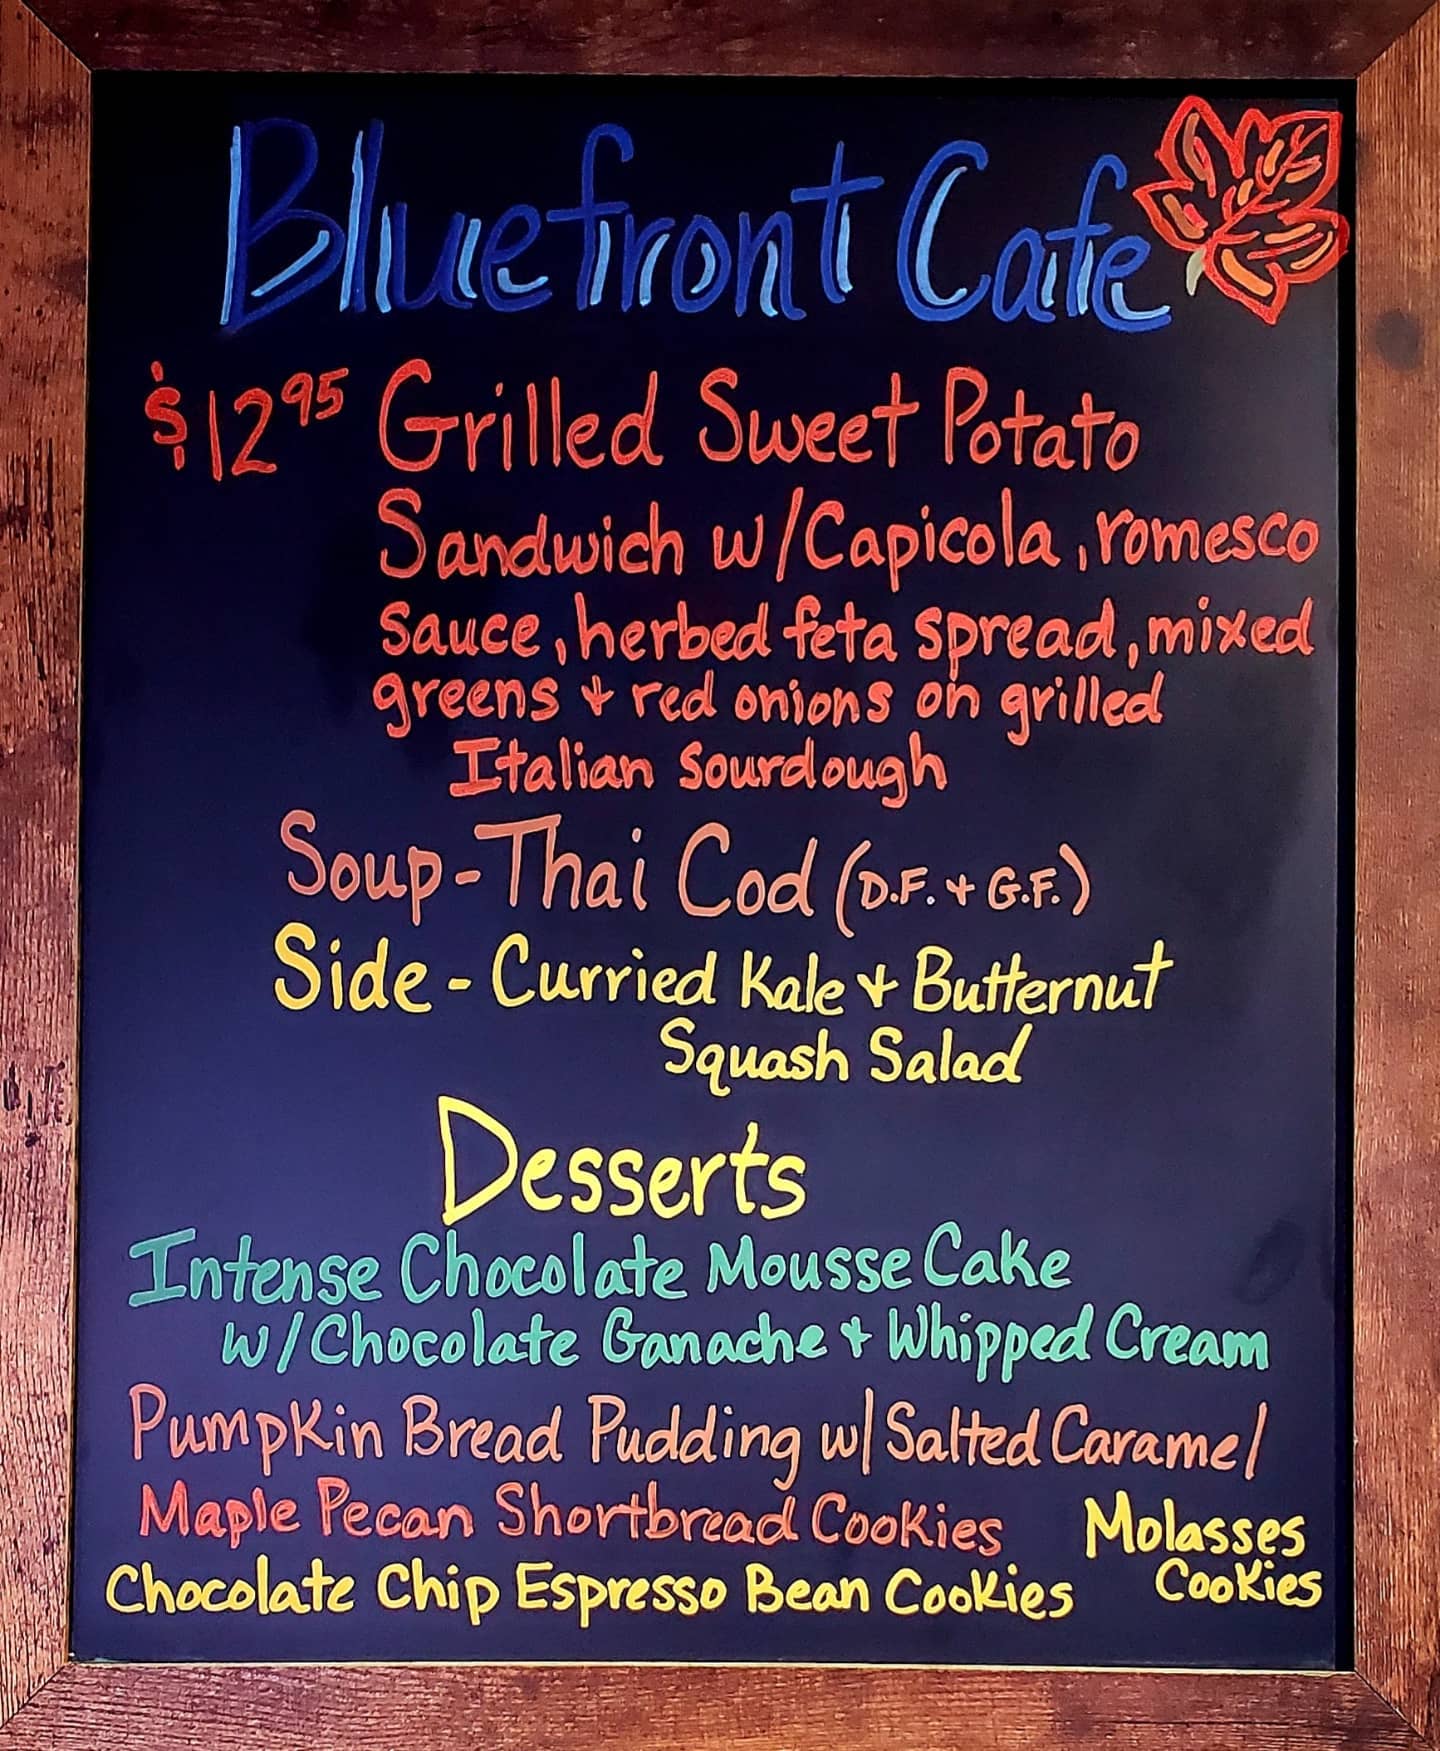 Bluefront Cafe
$12.95 Grilled Sweet Potato
Sandwich w/Capicola, romesco
sauce, herbed feta spread, mixed
greens + red onions on grilled
Italian sourdough
Soup-Thai Cod (D.F. + G.F.)
Side - Curried Kale + Butternut
Squash Salad
Desserts
Intense Chocolate Mousse Cake
w/Chocolate Ganache + Whipped Cream
Pumpkin Bread Pudding w/ Salted Caramel
Maple Pecan Shortbread Cookies
Molasses
Cookies
Chocolate Chip Espresso Bean Cookies